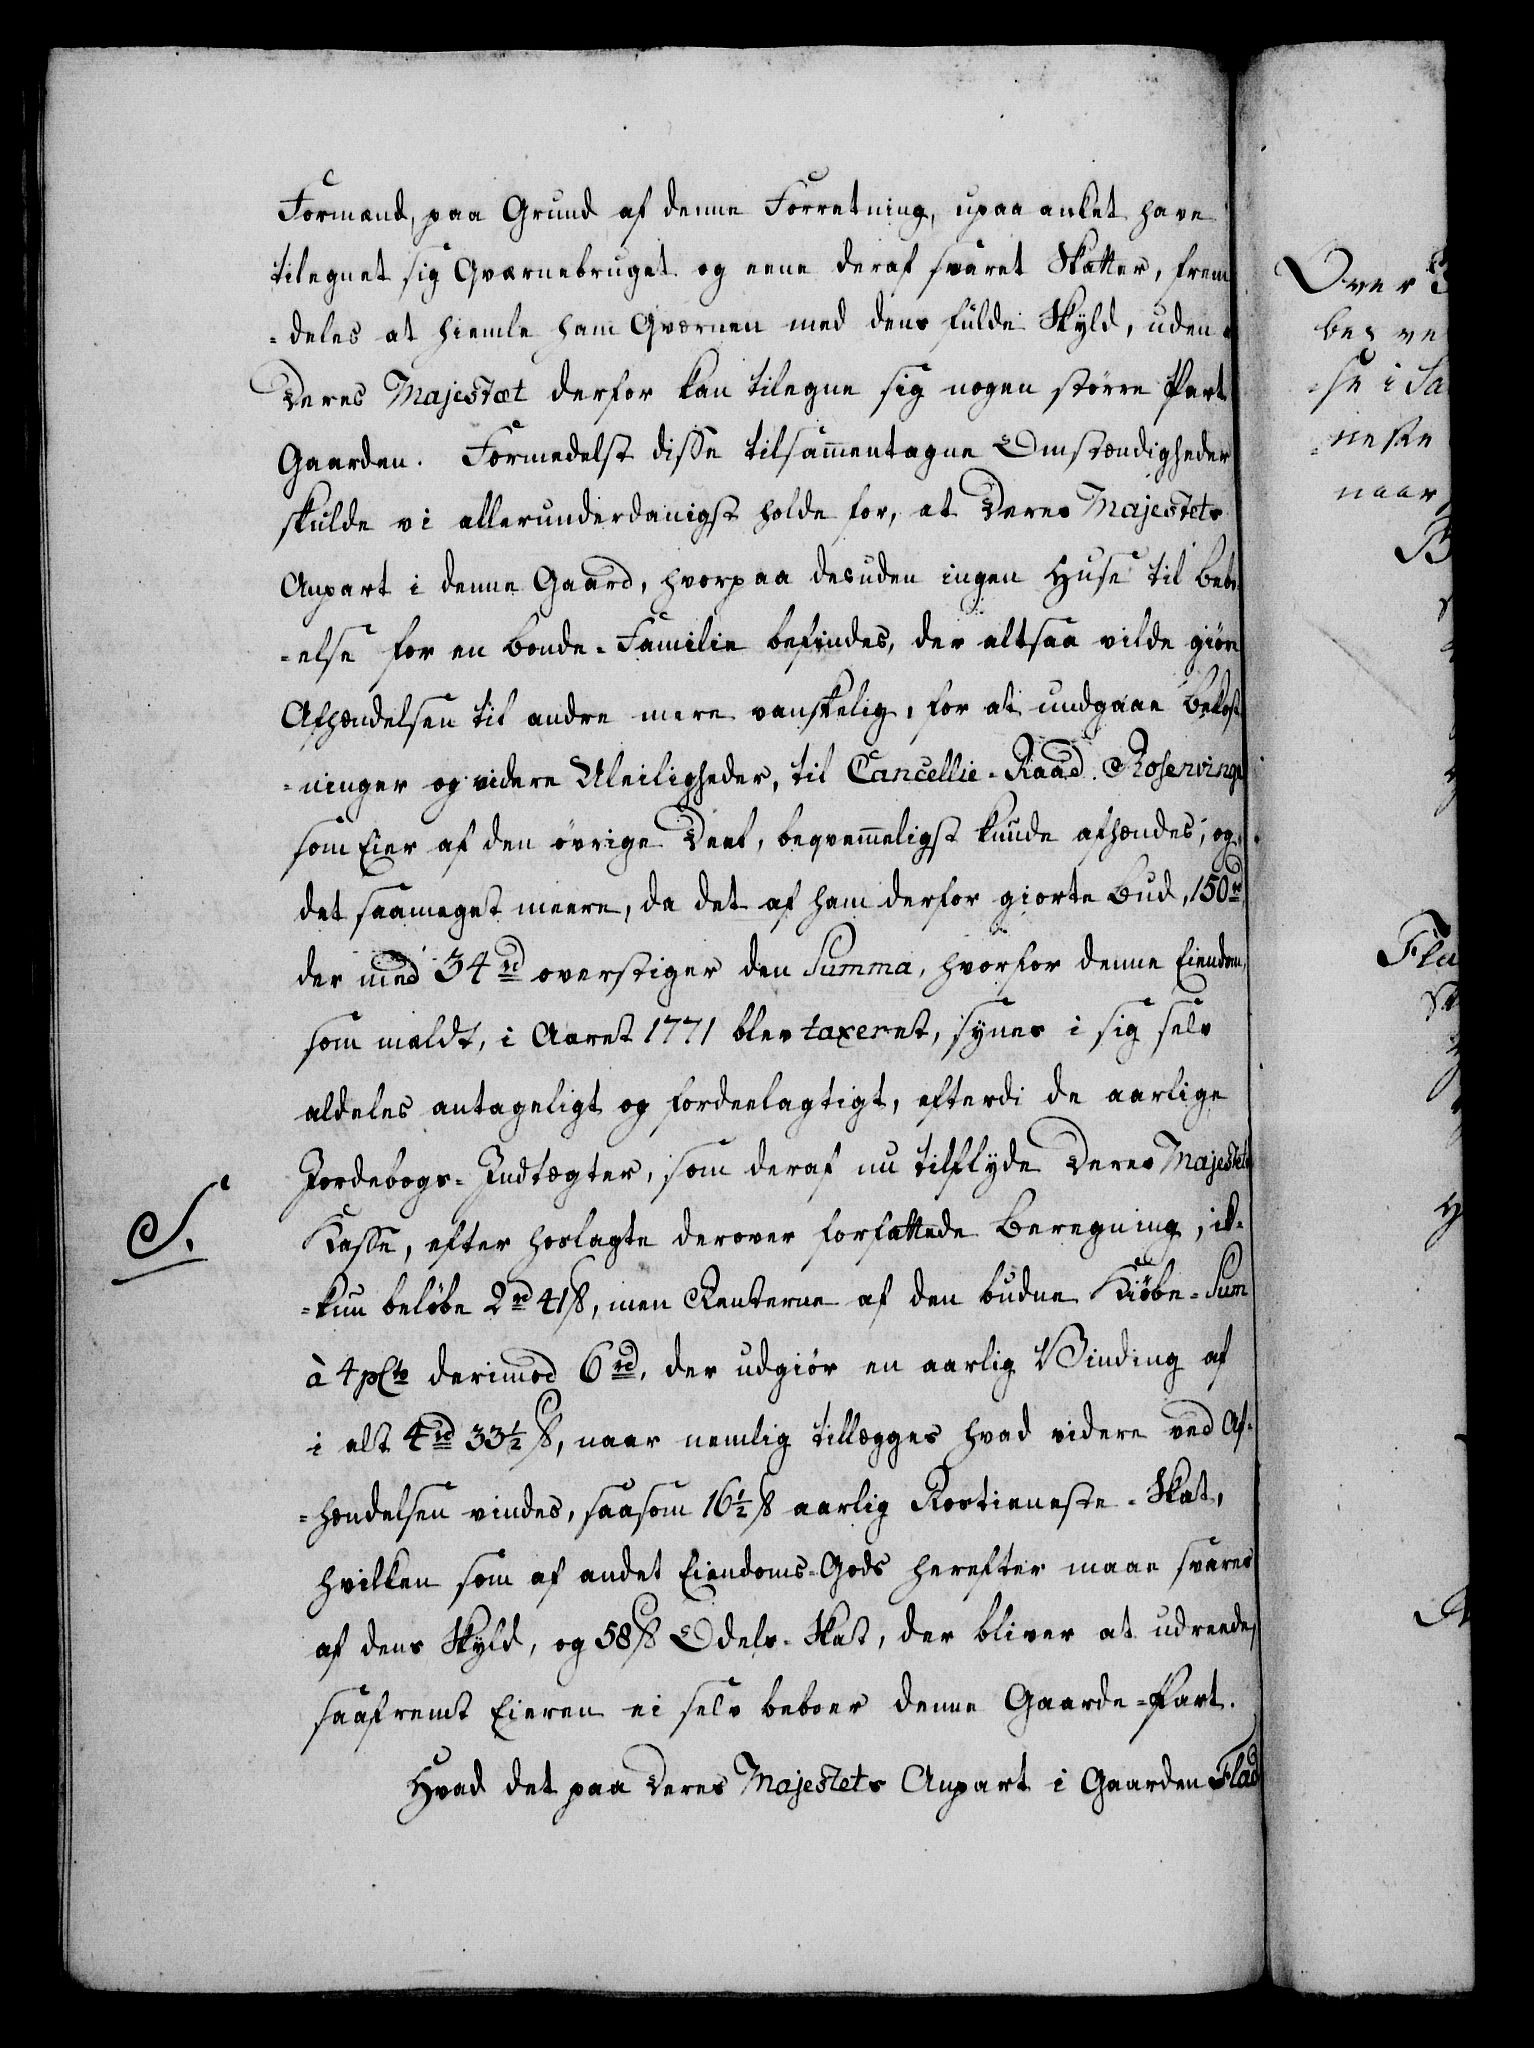 Formænd, paa Grund af denne Forretning, upaa anket have
tilegnet sig Qværnebruget og eene deraf svaret Skatter, frem
-deles at hiemle ham Qværnen med dens fulde Skyld, uden
Deres Majestæt derfor kan tilegne sig nogen större Part
Gaarden. Formedelst disse tilsammentagne Omstændigheder
skulde vi allerunderdanigst holde for, at Deres Majestets
Anpart i denne Gaard, hvorpaa desuden ingen Huse til Bebo
-else for en Bonde-Familie befindes, der altsaa vilde giöre
Afhændelsen til andre mere vanskelig, for at undgaae Bekost
-ninger og videre Uleiligheder, til Cancellie-Raad Rosenvinge
som Eier af den övrige Deel, beqvemmeligst kunde afhændes, og
det saameget meere, da det af ham derfor giorte Bud, 150 rd
der med 34 rd overstiger den Summa, hvorfor denne Eiendom,
som meldt, i Aaret 1771 blev taxeret, synes i sig selv
aldeles antageligt og fordeelagtigt, efterdi de aarlige
Jordebogs-Indtægter, som deraf nu tilflyde Deres Majestets
S. Kasse, efter hoslagte derover forfattede Beregning, ik-
-kun belöbe 2 rd 41 ß, men Renterne af den budne Kiöbe-Sum
à 4 pCto derimod 6 rd, der udgiör en aarlig Vinding af
i alt 4 rd 33½ ß, naar nemlig tillægges hvad videre ved Af-
-hændelsen vindes, saasom 16½ ß aarlig Rostieneste-Skat,
hvilken som af andet Eiendoms-Gods herefter maae svares
af dens Skyld, og 58 ß Odels-Skat, der bliver at udreede,
saafremt Eieren ei selv beboer denne Gaarde-Part.
Hvad det paa Deres Majestets Anpart i Gaarden Flad